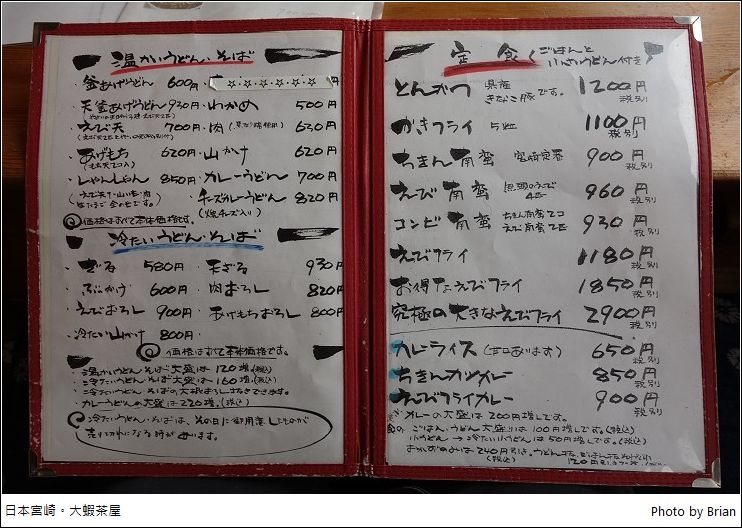 温かいうどん・そば
・釜あげうどん 600円
・天釜あげうどん 930円
・わかめ 500円
・えび天 700円
・肉 (県産豚使用) 630円
・あげもち 620円
(もち天2コ入)
・山かけ 620円
・しゃんしゃん 850円
(えび天・山いも・肉
・カレーうどん 700円
・チーズカレーうどん 820円
(焼チーズ入り)
◎価格はすべて本体価格です。
冷たいうどん・そば
・ざる 580円
・天ざる 930円
・ぶっかけ 600円
・肉おろし 820円
・えびおろし 900円
・あげもちおろし 800円
・冷たい山かけ 800円
◎価格はすべて本体価格です。
・温かいうどん・そば大盛は120増(税込)
・冷たいうどん・そば大盛は160増(税込)
・カレーうどんの大盛は220増(税込)
冷たいうどん・そばは、その日に御用意したものが
売り切れになる時が
定食 (ごはんと
小さいうどん付き)
とんかつ 県産
きなこ豚です。 1200円
税別
かきフライ 5粒 1100円
税別
ちきん南蛮 宮崎定番 900円
税別
えび南蛮 4匹 960円
税別
コンビ南蛮 ちきん南蛮2コ
えび南蛮2匹 930円
税別
えびフライ 1180円
税別
お得なえびフライ 1850円
税別
究極の大きなえびフライ 2900円
税別
カレーライス (甘口あります) 650円
税別
ちきんカツカレー 850円
税別
えびフライカレー 900円
税別
カレーの大盛は200円増しです。
ごはん、うどん大盛りは100円増しです。(税込)
小うどん → 冷たい小うどんは50円増しです。(税込)
おかずのみは240円引き。
(税込)
日本宮崎。大蝦茶屋
Photo by Brian